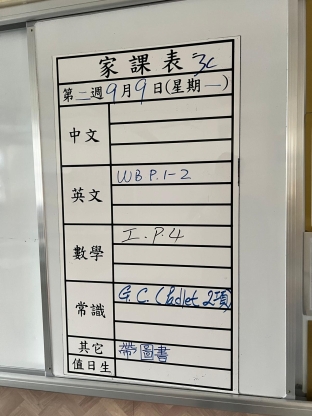 家課表 3C
第二週9月9日(星期一)
中文
英文 WB P.1-2
數學 I. P.4
常識 G.C. (Padlet 2項)
其它 帶圖書
值日生